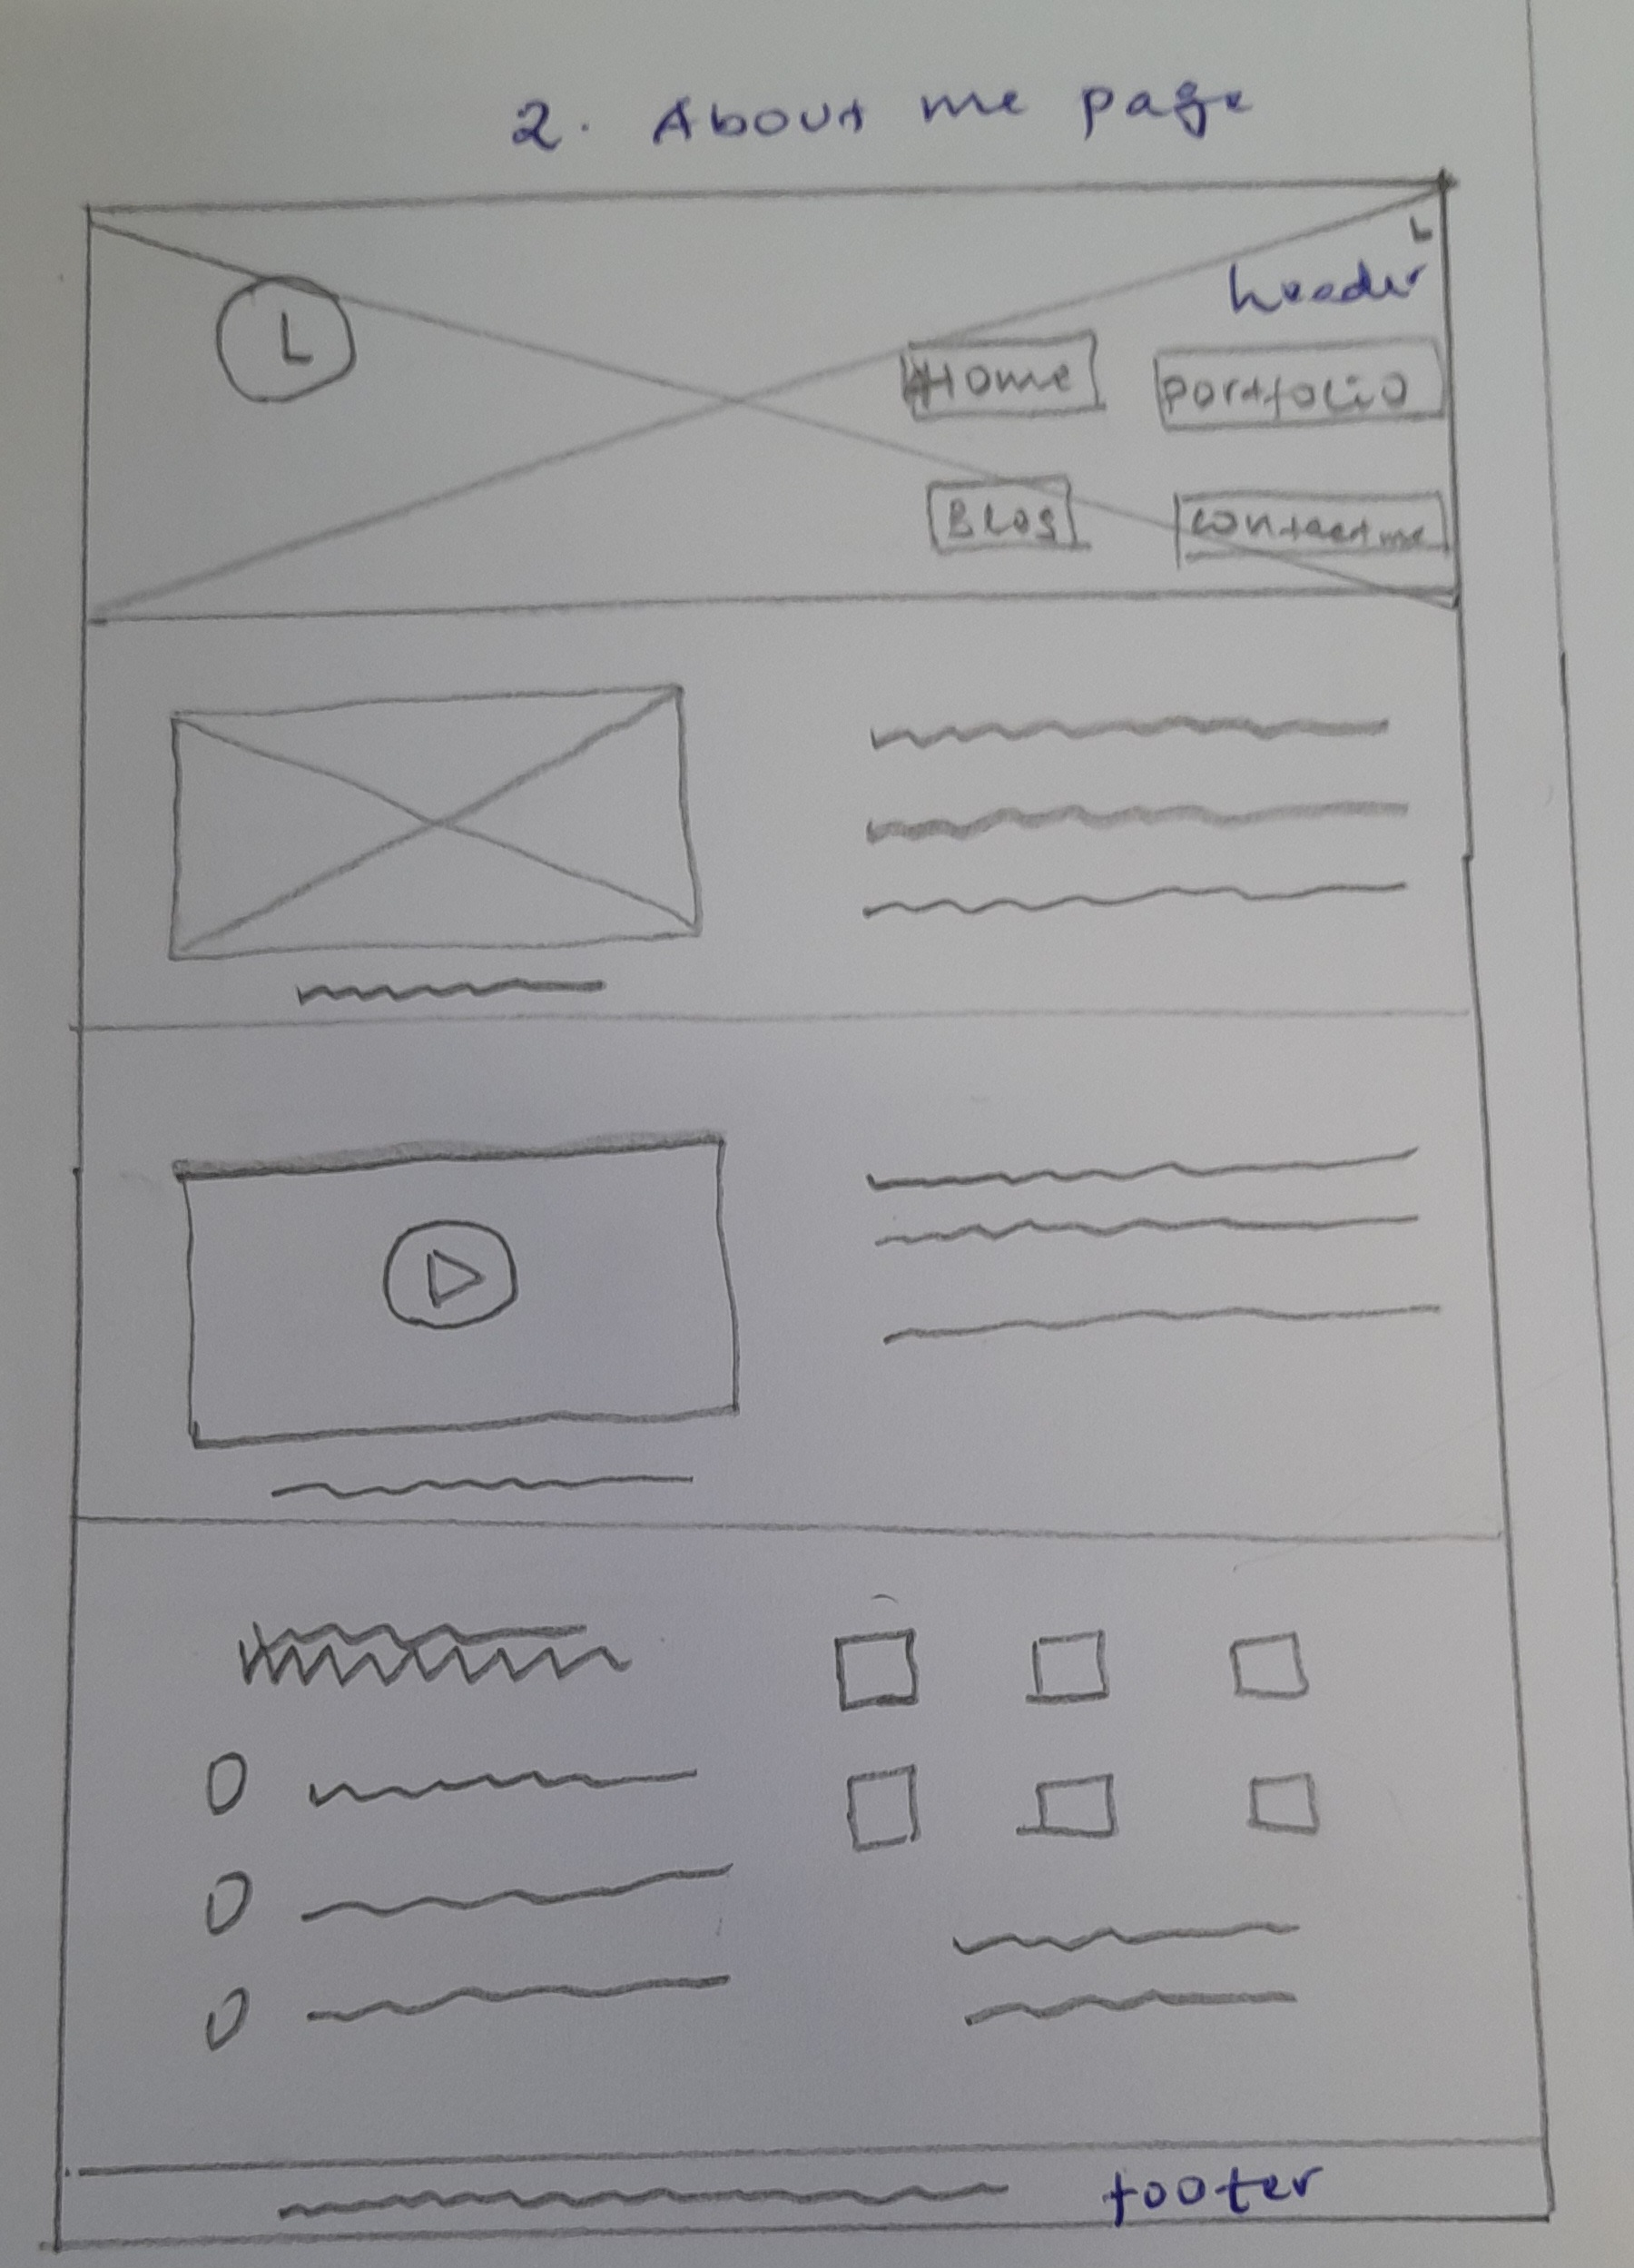 2. About me page
L
header
Home Portfolio
Blog contact me
footer